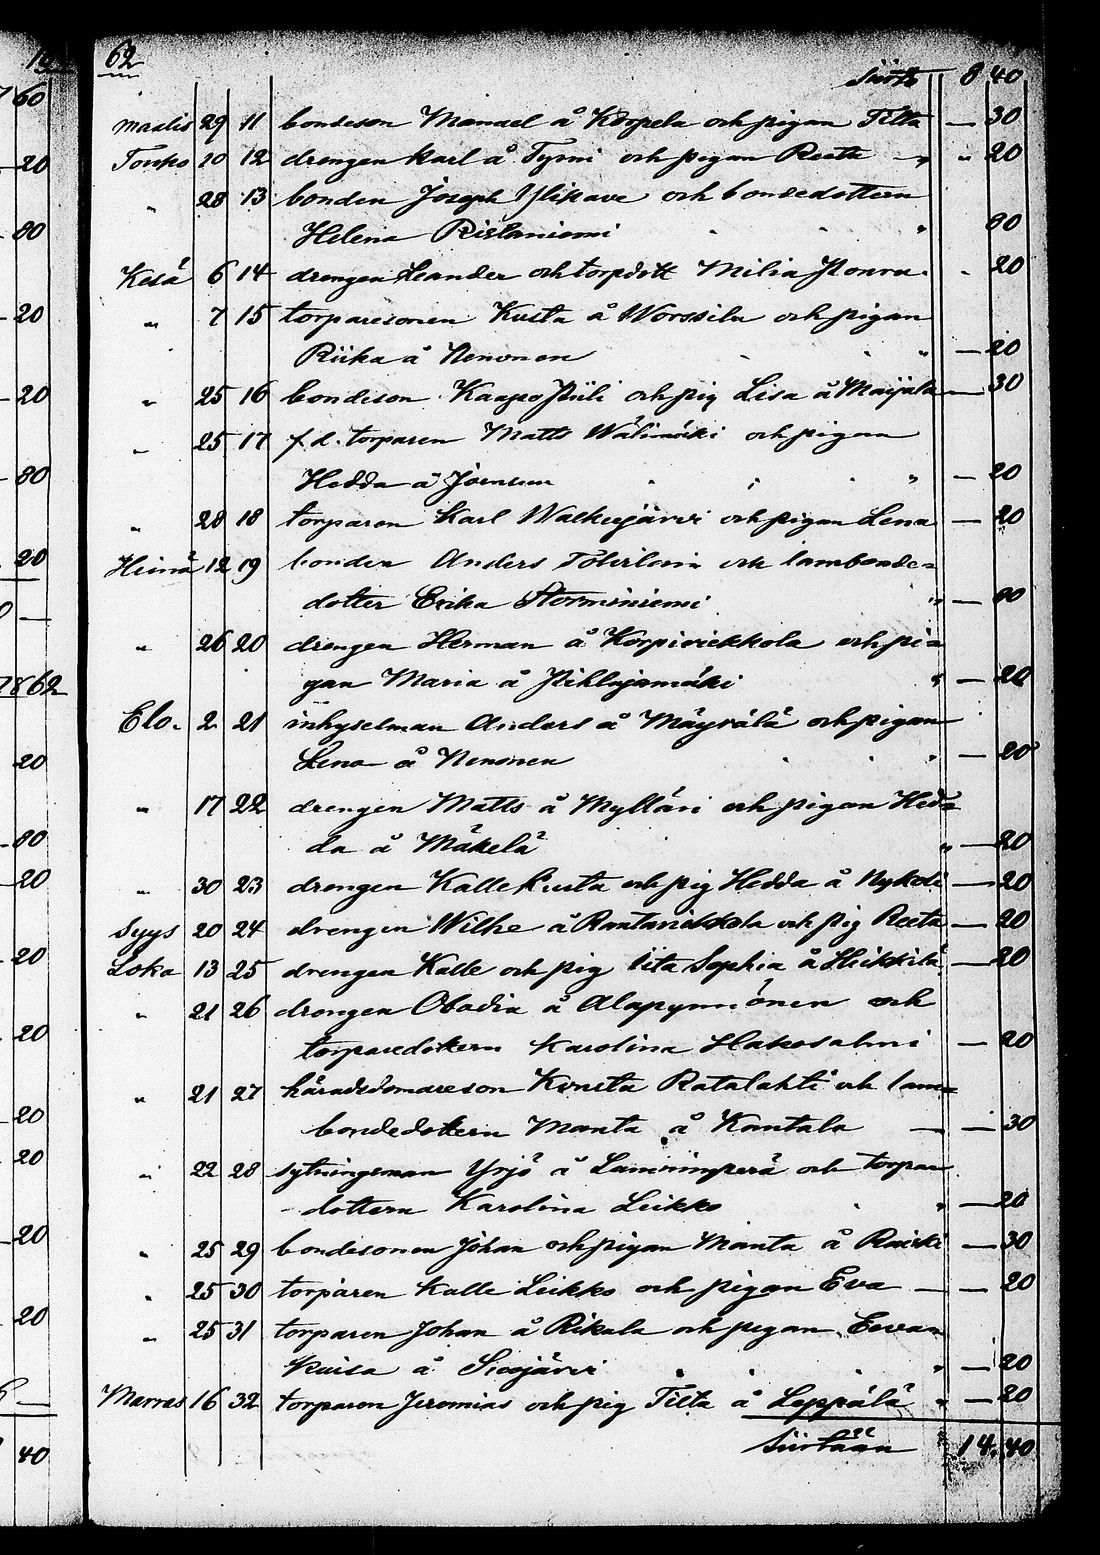 62
Siirto 8 40
Maalis 29 11 bondeson Manuel å Korpela och pigan Tilta — 30
Touko 20 12 drengen Karl å Tyrni och pigan Reeta " 20
" 28 13 bonden Joseph Ylikave och bondedottern
Helena Ristaniemi " 80
Kesä 6 14 drengen Leander och torpdott Milia 20
" 7 15 torparesonen Kusta å Worssila och pigan
Riika å Nenonen " — 20
" 25 16 bondeson Kaapo och pig Lisa å Maijala — 30
" 25 17 f.d. torparen Matts Wälimäki och pigan
Hedda å " — 20
" 28 18 torparen Karl Walkiajärvi och pigan Lena — 20
Heinä 12 19 bonden Anders och lambonde=
dotter Erika " — 80
" 26 20 drengen Herman å Korpiviekkola och pi=
gan Maria å Pihlajamäki " — 20
Elo. 2 21 inhyselman Anders å Mäyrälä och pigan
Lena å Nenonen " — 20
" 17 22 drengen Matts å Mylläri och pigan Hed=
da å Mäkelä " — 20
" 30 23 drengen Kalle Kusta och pig Hedda å — 20
Syys 20 24 drengen Wilhe å och pig Reeta — 20
Loka 13 25 drengen Kalle och pig Sophia å Heikkilä — 20
" 21 26 drengen Obadia å Alapynnönen och
torparedottern Karolina Hakosalmi — 20
" 21 27 häradsdomareson Konsta Ratalahti och lam=
bondedottern Manta å Kantala — — 30
" 22 28 sytningsman Yrjö å Lamminperä och torpar
dottern Karolina Leikko " — 20
" 25 29 bondesonen Johan och pigan Manta å Raiski — 30
" 25 30 torparen Kalle Leikko och pigan Eva — — 20
" 25 31 torparen Johan å Rikala och pigan Eevan
Kaisa å " — 20
Marras 16 32 torparen Jeremias och pig Tilta å Leppälä " — 20
Siirtään 14.40